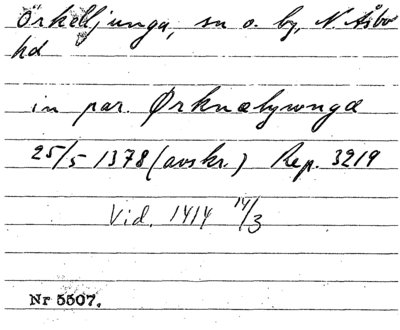 Örkelljunga, sn o. by, N. Åsbo
hd
in par. Ørknælywngæ
25/5 1378 (avskr.) Rep. 3219
Vid. 1414 14/3
Nr 5507.